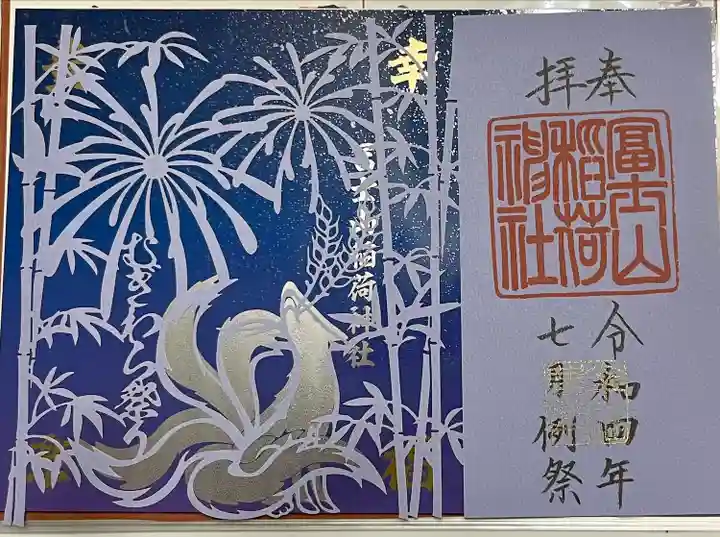 奉拝
冨士山
稲荷
神社
令和四年
七月例祭
冨士山稲荷神社
むぎわら祭り
幸
幸